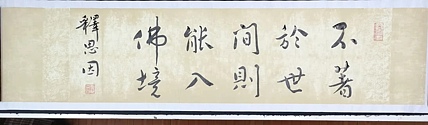 不著
於世
間則
能入
佛境
釋思因